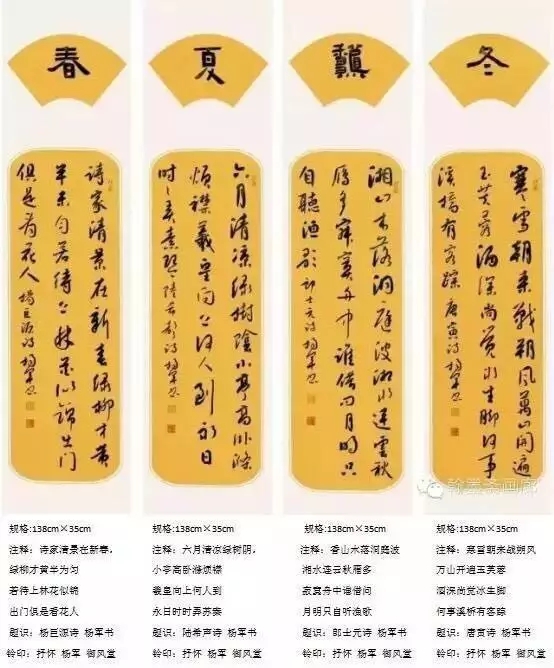 春
夏
冬
诗家清景在新春绿柳才黄
半未匀若待上林花似锦出门
俱是看花人 杨巨源诗 杨军书
六月清凉绿树阴小亭高卧涤
烦襟羲皇向上何人到永日
时时弄素琴 陆希声诗 杨军书
湘山木落洞庭波湘水连云秋
雁多寂寞舟中谁借问月明只
自听渔歌 郎士元诗 杨军书
寒雪朝来战朔风万山开遍
玉芙蓉酒深尚觉冰生脚何事
溪桥有客踪 唐寅诗 杨军书
翰墨圣画廊
规格:138cm×35cm
注释：诗家清景在新春，
绿柳才黄半为匀
若待上林花似锦
出门俱是看花人
题识：杨巨源诗 杨军书
钤印：抒怀 杨军 御风堂
规格:138cm×35cm
注释：六月清凉绿树阴，
小亭高卧涤烦襟
羲皇向上何人到
永日时时弄苏琴
题识：陆希声诗 杨军书
钤印：抒怀 杨军 御风堂
规格:138cm×35cm
注释：香山木落洞庭波
湘水连云秋雁多
寂寞舟中谁借问
月明只自听渔歌
题识：郎士元诗 杨军书
钤印：抒怀 杨军 御风堂
规格:138cm×35cm
注释：寒雪朝来战朔风
万山开遍玉芙蓉
酒深尚觉冰生脚
何事溪桥有客踪
题识：唐寅诗 杨军书
钤印：抒怀 杨军 御风堂